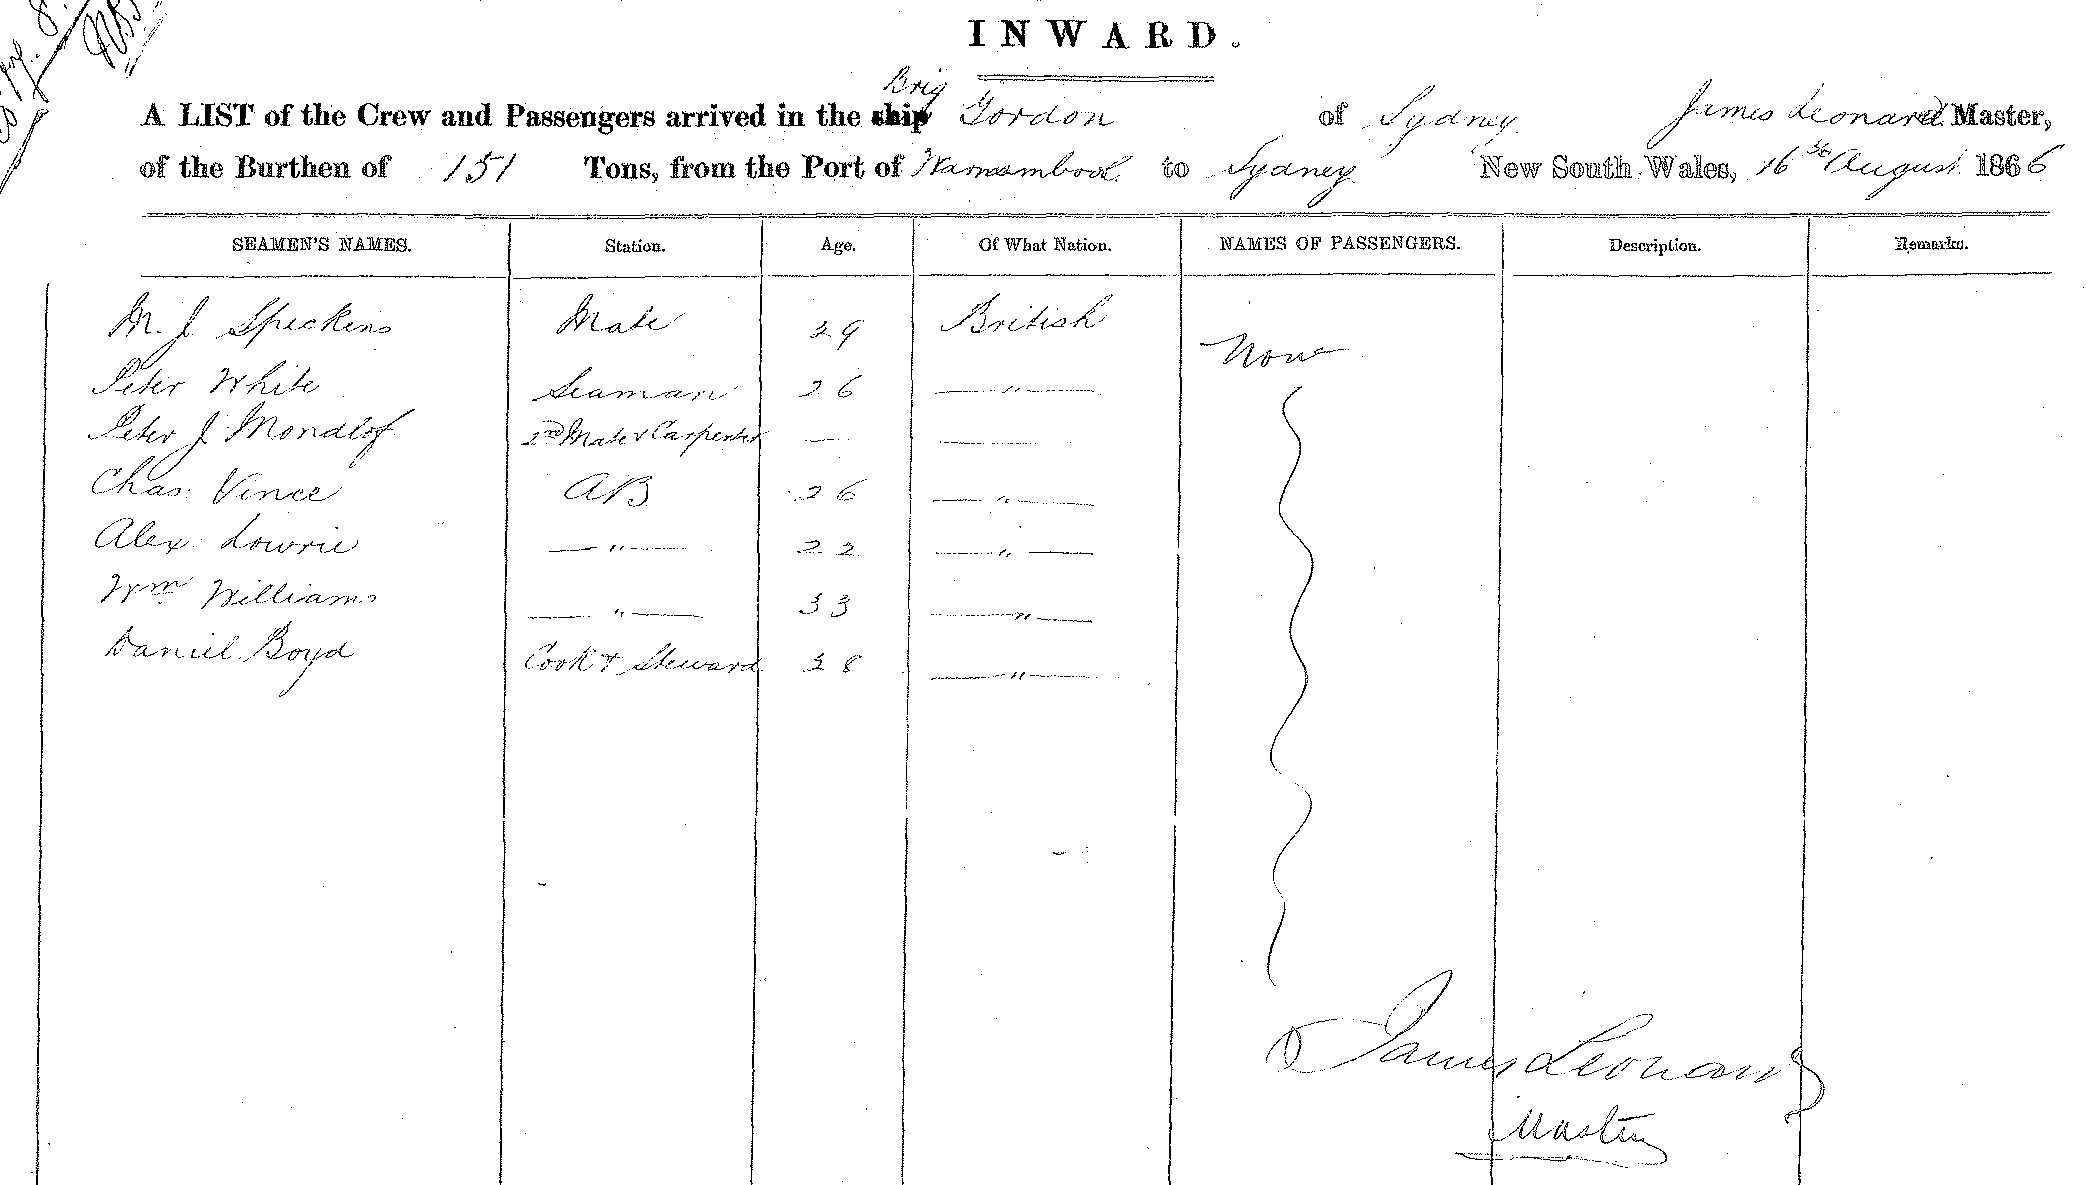 INWARD.
Brig
A LIST of the Crew and Passengers arrived in the ship Gordon of Sydney James Leonard Master,
of the Burthen of 151 Tons, from the Port of Warnambool to Sydney New South Wales, 16th August 1866
SEAMEN'S NAMES. Station. Age. Of What Nation. NAMES OF PASSENGERS. Description. Remarks.
M. J Speckens Mate 29 British
None
Peter White Seaman 26 — " —
Peter J Mondlof 2nd Mate & Carpenter — —
Chas. Vince AB 26 — " —
Alex. Lowrie — " — 22 — " —
Wm Williams — " — 33 — " —
Daniel Boyd Cook & Steward 38 — " —
James Leonard
Master